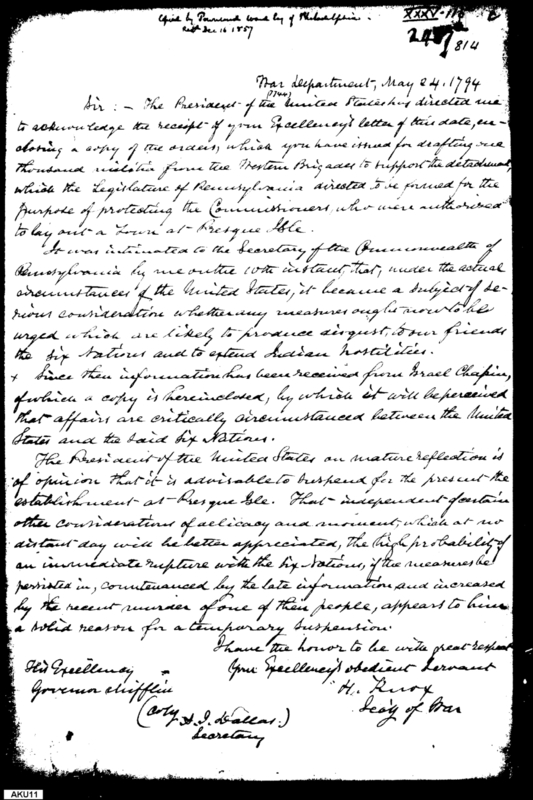 Copied by Townsend Ward Esq of Philadelphia.
Dec 16 1857
XXXV-118
814
War Department, May 24, 1794
Sir: - The President of the United States has directed me
to acknowledge the receipt of your Excellency's letter of this date, en-
closing a copy of the orders, which you have issued for drafting one
thousand militia from the Western Brigades to support the detachment,
which the Legislature of Pennsylvania directed to be formed for the
purpose of protecting the Commissioners, who were authorized
to lay out a Town at Presque Isle.
It was intimated to the Secretary of the Commonwealth of
Pennsylvania by me on the 10th instant, that, under the actual
circumstances of the United States, it became a subject of se-
rious consideration whether any measures ought now to be
urged which are likely to produce disgust, to our friends
the Six Nations and to extend Indian hostilities.
x Since then information has been received from Israel Chapin,
of which a copy is herein closed, by which it will be perceived
that affairs are critically circumstanced between the United
States and the said Six Nations.
The President of the United States on mature reflection is
of opinion that it is advisable to suspend for the present the
establishment at Presque Isle. That independent of certain
other considerations of delicacy and moment, which at no
distant day will be better appreciated, the high probability of
an immediate rupture with the Six Nations, if the measures be
persisted in, countenanced by the late information and increased
by the recent murder of one of their people, appears to him
a solid reason for a temporary suspension.
I have the honor to be with great respect
Your Excellency's obedient servant
H. Knox
Sec'y of War
His Excellency
Governor Mifflin
(Copy A. J. Dallas.)
Secretary
AKU11